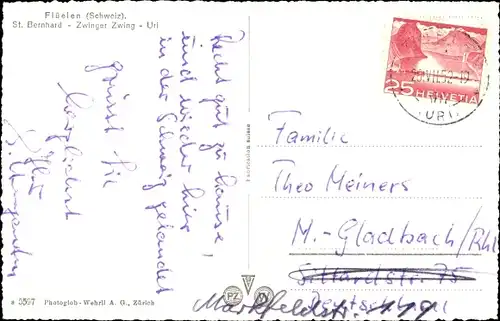 Flüelen (Schweiz).
St. Bernhard - Zwinger Zwing - Uri
Recht gut zu Hause,
und wieder hier
in der Schweiz gelandet
grüsst Sie
herzlichst
Ihr
Fabrication suisse
25 HELVETIA
VII.52
(URI)
Familie
Theo Meiners
M.-Gladbach/Rhl
Sittardstr. 75
Deutschland
Marktfeldstr. 119
PZ
a 3597 Photoglob-Wehrli A. G., Zürich